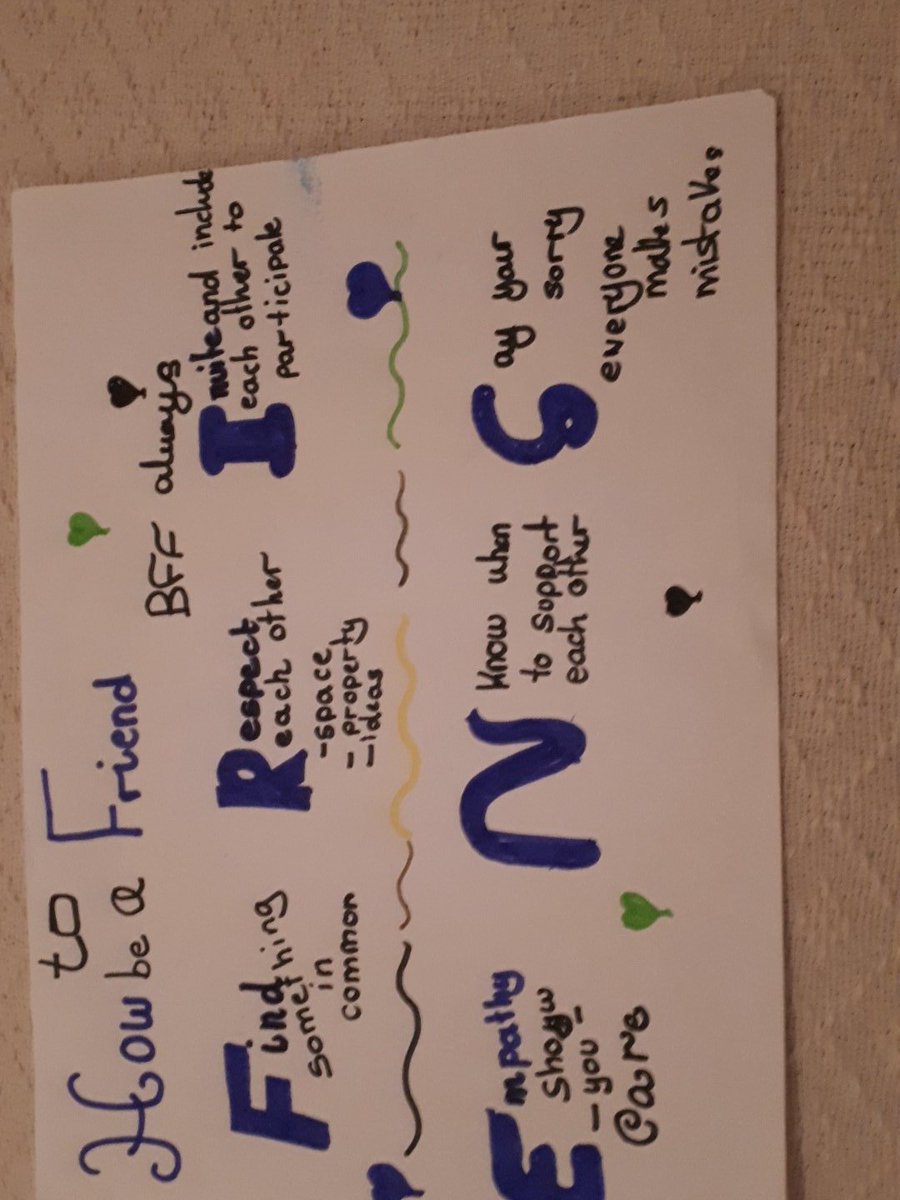 How to be a Friend
BFF always
Find
something
in
common
Respect
each other
-space
- property
- ideas
Invite and include
each other to
participate
Empathy
show
- you
Care
N Know when
to support
each other
Say your
sorry
everyone
makes
mistakes